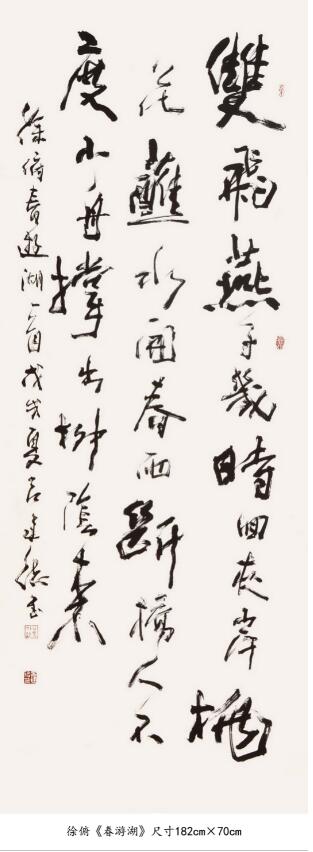 雙飛燕子幾時回夾岸桃
花蘸水開春雨斷橋人不
度小舟撐出柳陰來
徐俯春遊湖一首戊戌夏
徐俯《春游湖》尺寸182cm×70cm